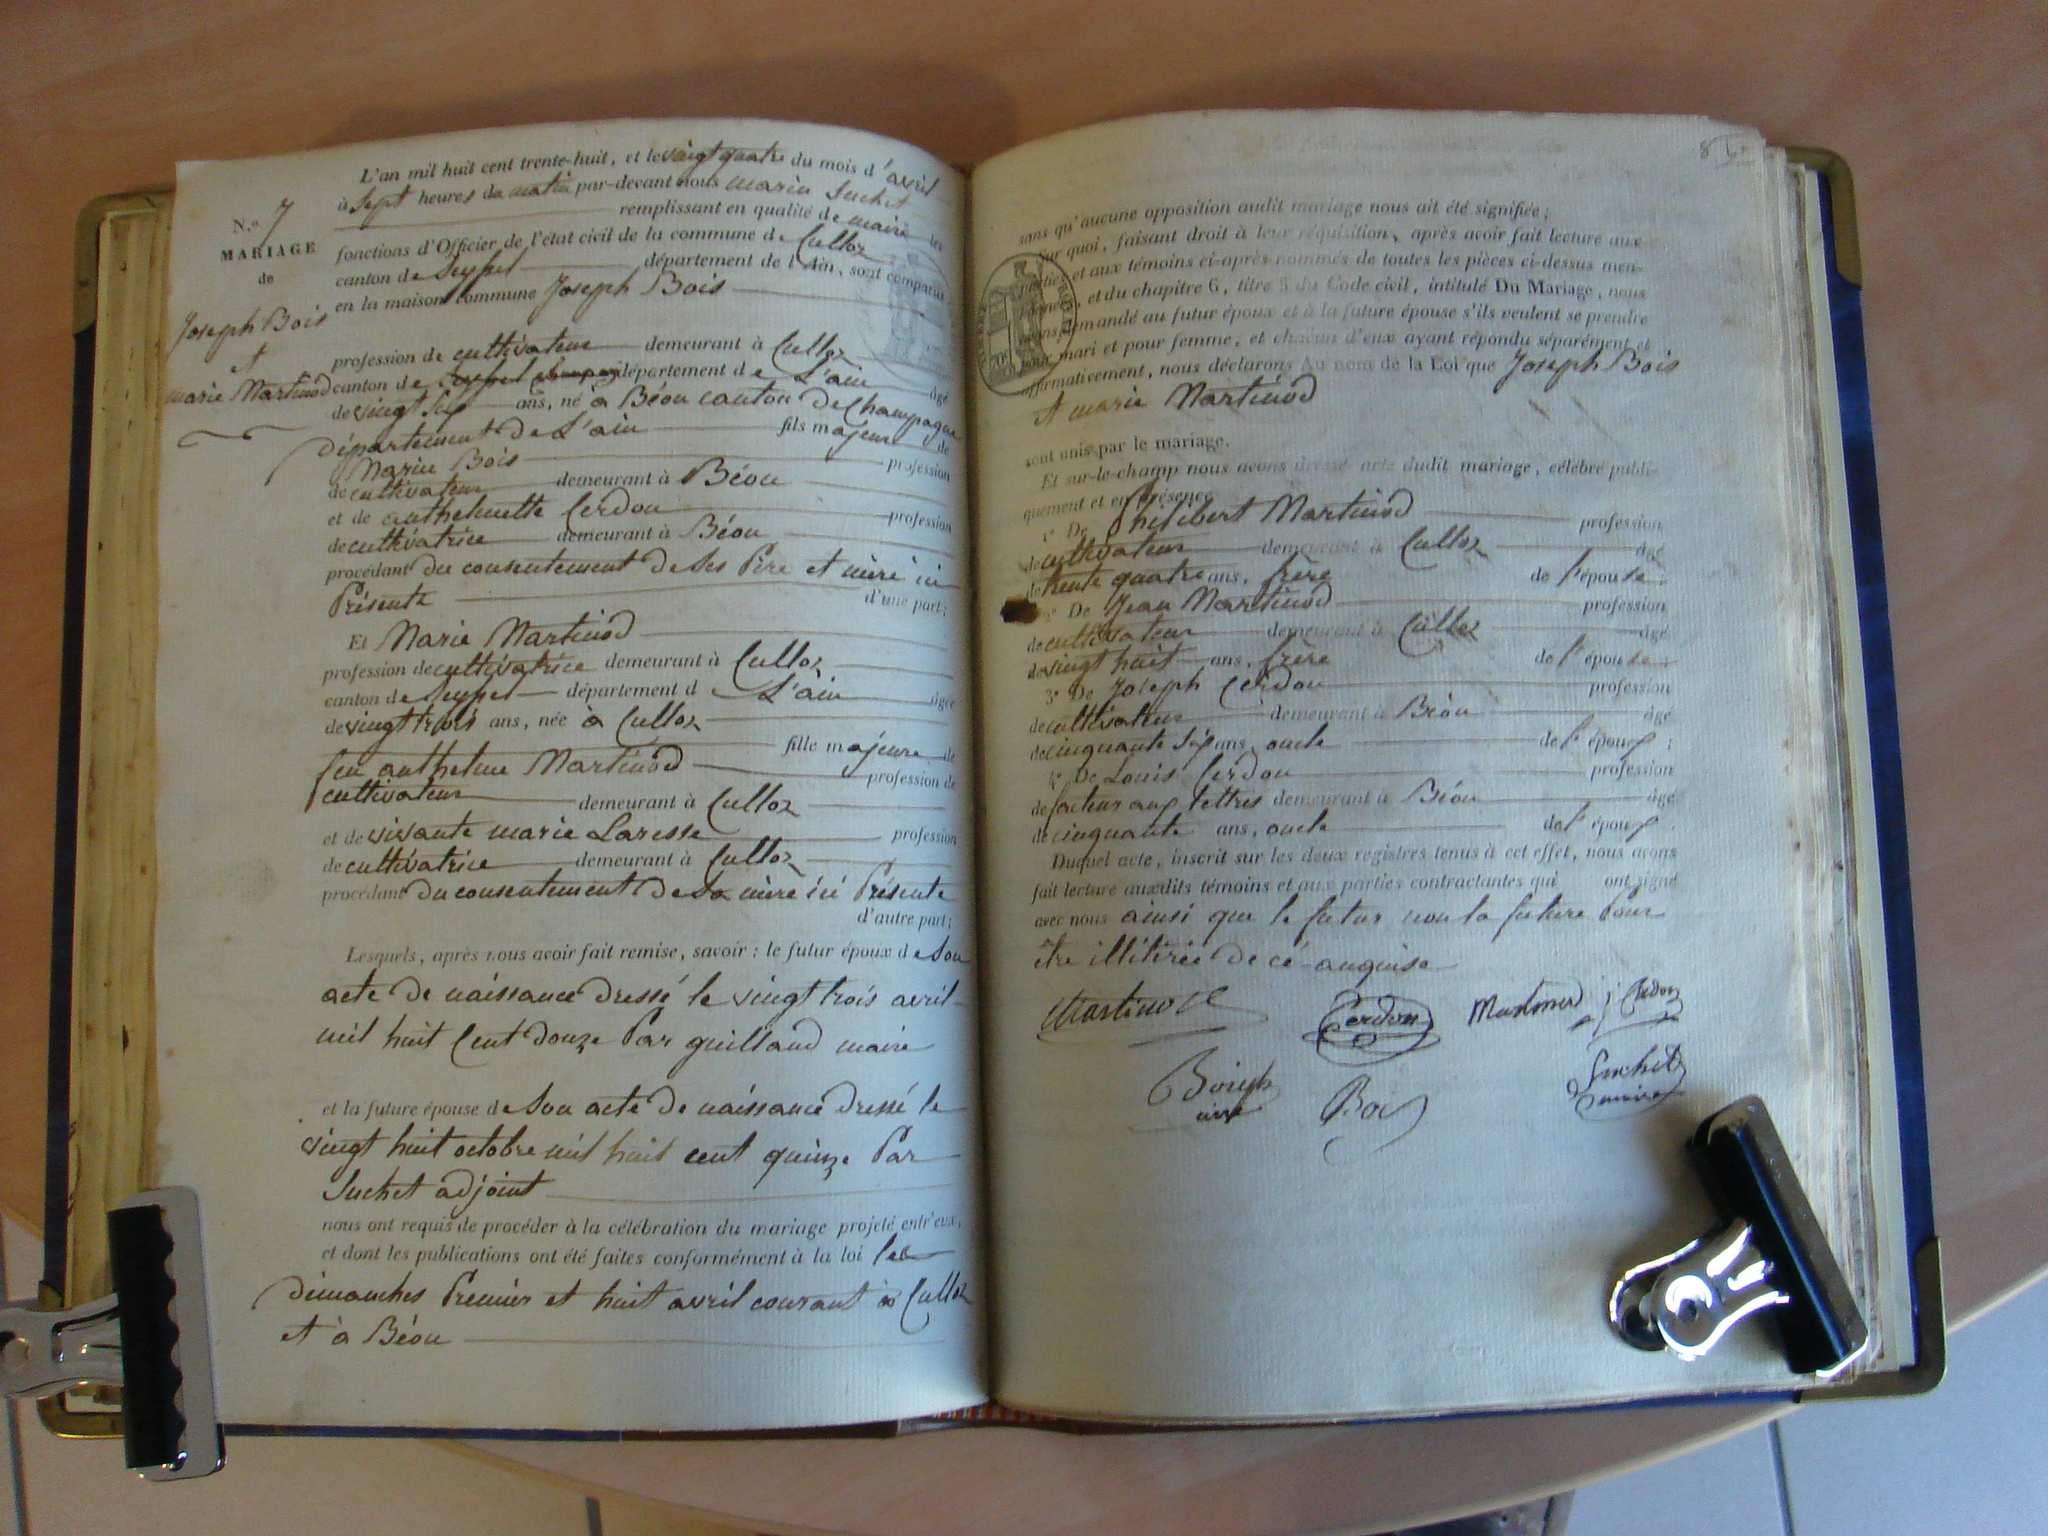 N.o 7
MARIAGE
de
Joseph Bois
et
marie Martinod
L'an mil huit cent trente-huit, et le vingt quatre du mois d'avril
à sept heures du matin par-devant nous marin Suchet
remplissant en qualité de maire les
fonctions d'Officier de l'état civil de la commune de Culloz
canton de Seyssel département de l'Ain, sont comparus
en la maison commune Joseph Bois
profession de cultivateur demeurant à Culloz
canton de Seyssel département de L'ain âgé
de vingt six ans, né à Béon canton de Champagne
département de L'ain fils majeur de
Marin Bois profession
de cultivateur demeurant à Béon
et de anthelmette Cerdon profession
de cultivatrice demeurant à Béon
procédant du consentement de ses Père et mère ici
Présents d'une part;
Et Marie Martinod
profession de cultivatrice demeurant à Culloz
canton de Seyssel département de L'ain âgée
de vingt trois ans, née à Culloz
fille majeure de
feu anthelme Martinod profession de
cultivateur demeurant à Culloz
et de vivante marie Laresse profession
de cultivatrice demeurant à Culloz
procédant du consentement de Sa mère ici Présente
d'autre part;
Lesquels, après nous avoir fait remise, savoir : le futur époux de Son
acte de naissance dressé le vingt trois avril
mil huit Cent douze Par guilland maire
et la future épouse de Son acte de naissance dressé le
vingt huit octobre mil huit cent quinze Par
Suchet adjoint
nous ont requis de procéder à la célébration du mariage projeté entr'eux,
et dont les publications ont été faites conformément à la loi les
dimanches Premier et huit avril courant à Culloz
et à Béon
8
sans qu'aucune opposition audit mariage nous ait été signifiée;
Sur quoi, faisant droit à leur réquisition, après avoir fait lecture aux
parties et aux témoins ci-après nommés de toutes les pièces ci-dessus men-
tionnées, et du chapitre 6, titre 5 du Code civil, intitulé Du Mariage, nous
avons demandé au futur époux et à la future épouse s'ils veulent se prendre
pour mari et pour femme, et chacun d'eux ayant répondu séparément et
affirmativement, nous déclarons Au nom de la Loi que Joseph Bois
et marie Martinod
sont unis par le mariage.
Et sur-le-champ nous avons dressé acte dudit mariage, célébré publi-
quement et en présence
1° De Philibert Martinod profession
de cultivateur demeurant à Culloz âgé
de trente quatre ans, frère de l'épouse.
2° De Jean Martinod profession
de cultivateur demeurant à Culloz âgé
de vingt huit ans, frère de l'épouse.
3° De Joseph Cerdon profession
de cultivateur demeurant à Béon âgé
de cinquante six ans, oncle de l'époux;
4° De Louis Cerdon profession
de facteur aux lettres demeurant à Béon âgé
de cinquante ans, oncle de l'époux.
Duquel acte, inscrit sur les deux registres tenus à cet effet, nous avons
fait lecture auxdits témoins et aux parties contractantes qui ont signé
avec nous ainsi que le futur non la future Pour
être illitérée de cé-anquise
Martinod Cerdon Martinod j Cerdon
Bois Suchet
maire